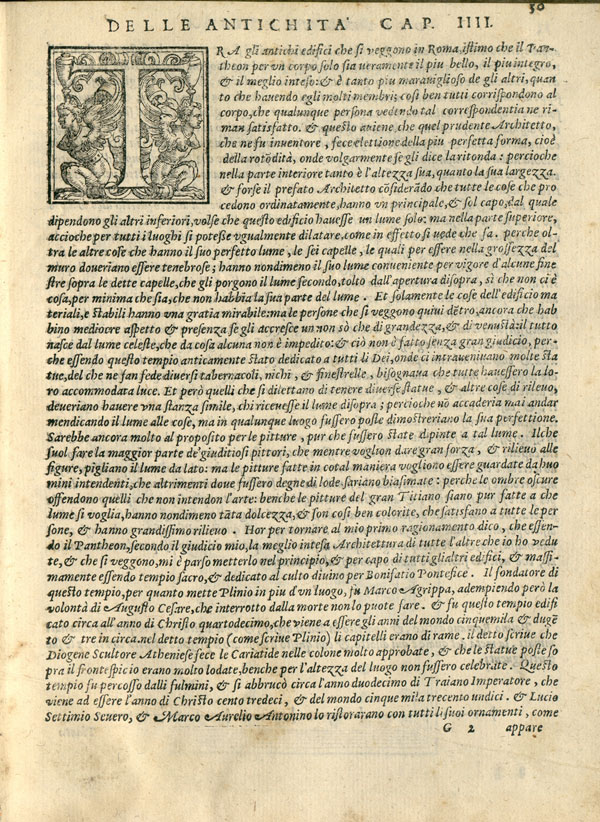 50
DELLE ANTICHITA' CAP. IIII.
TRA gli antichi edifici che si veggono in Roma, istimo che il Pan-
theon per vn corpo solo sia veramente il piu bello, il piu integro,
& il meglio inteso: & è tanto piu marauiglioso de gli altri, quan
to che hauendo egli molti membri, cosi ben tutti corrispondono al
corpo, che qualunque persona vedendo tal correspondentia ne ri-
man satisfatto. & questo auiene, che quel prudente Architetto,
che ne fu inuentore, fece elettione della piu perfetta forma, cioè
della rotõdità, onde volgarmente se gli dice la ritonda: percioche
nella parte interiore tanto è l'altezza sua, quanto la sua largezza.
& forse il prefato Architetto cõsiderãdo che tutte le cose che pro
cedono ordinatamente, hanno vn principale, & sol capo, dal quale
dipendono gli altri inferiori, volse che questo edificio hauesse un lume solo: ma nella parte superiore,
accioche per tutti i luoghi si potesse vgualmente dilatare. come in effetto si uede che fa. perche ol-
tra le altre cose che hanno il suo perfetto lume, le sei capelle, le quali per essere nella grossezza del
muro doueriano essere tenebrose; hanno nondimeno il suo lume conueniente per vigore d'alcune fine
stre sopra le dette capelle, che gli porgono il lume secondo, tolto dall'apertura disopra, sì che non ci è
cosa, per minima che sia, che non habbia la sua parte del lume. Et solamente le cose dell'edificio ma
teriali, e stabili hanno vna gratia mirabile: ma le persone che si veggono quiui dẽtro, ancora che hab
bino mediocre aspetto & presenza se gli accresce un non sò che di grandezza, & di venustà: il tutto
nasce dal lume celeste, che da cosa alcuna non è impedito: & ciò non è fatto senza gran giudicio, per-
che essendo questo tempio anticamente stato dedicato a tutti li Dei, onde ci interueniuano molte sta
tue, del che ne fan fede diuersi tabernacoli, nichi, & finestrelle, bisognaua che tutte hauessero la lo-
ro accommodata luce. Et però quelli che si dilettano di tenere diuerse statue, & altre cose di rileuo,
deueriano hauere vna stanza simile, chi riceuesse il lume disopra; percioche nõ accaderia mai andar
mendicando il lume alle cose, ma in qualunque luogo fussero poste dimostreriano la sua perfettione.
Sarebbe ancora molto al proposito per le pitture, pur che fussero state dipinte a tal lume. Ilche
suol fare la maggior parte de' giuditiosi pittori, che mentre voglion dare gran forza, & rilieuo alle
figure, pigliano il lume da lato: ma le pitture fatte in cotal maniera vogliono essere guardate da huo
mini intendenti, che altrimenti doue fussero degne di lode, sariano biasimate: perche le ombre oscure
offendono quelli che non intendon l'arte: benche le pitture del gran Titiano siano pur fatte a che
lume si voglia, hanno nondimeno tãta dolcezza, & son cosi ben colorite, che satisfano a tutte le per
sone, & hanno grandissimo rilieuo. Hor per tornare al mio primo ragionamento dico, che essen-
do il Pantheon, secondo il giudicio mio, la meglio intesa Architettura di tutte l'altre che io ho vedu
te, & che si veggono, mi è parso metterlo nel principio, & per capo di tutti gli altri edifici, & massi-
mamente essendo tempio sacro, & dedicato al culto diuino per Bonifatio Pontefice. Il fondatore di
questo tempio, per quanto mette Plinio in piu d'vn luogo, fu Marco Agrippa, adempiendo però la
volontà di Augusto Cesare, che interrotto dalla morte non lo puote fare. & fu questo tempio edifi
cato circa all'anno di Christo quartodecimo, che viene a essere gli anni del mondo cinquemila & dugẽ
to & tre in circa. nel detto tempio (come scriue Plinio) li capitelli erano di rame. il detto scriue che
Diogene Scultore Atheniese fece le Cariatide nelle colone molto approbate, & che le statue poste so
pra il frontespicio erano molto lodate, benche per l'altezza del luogo non fussero celebrate. Questo
tempio fu percosso dalli fulmini, & si abbrucò circa l'anno duodecimo di Traiano Imperatore, che
viene ad essere l'anno di Christo cento tredeci, & del mondo cinque mila trecento undici. & Lucio
Settimio Seuero, & Marco Aurelio Antonino lo ristorarano con tutti li suoi ornamenti, come
G 2 appare